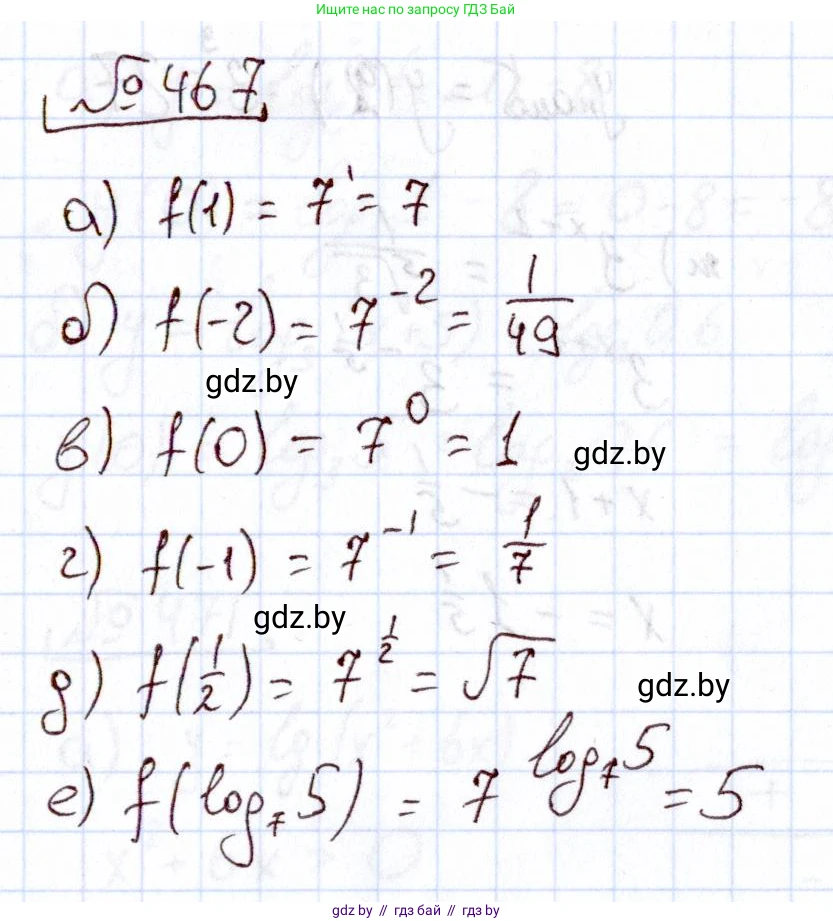 Личные ответы по запросу ГДЗ Бай
№ 467
а) f(1) = 7¹ = 7
б) f(-2) = 7⁻² = 1/49
gdz.by
в) f(0) = 7⁰ = 1
gdz.by
г) f(-1) = 7⁻¹ = 1/7
gdz.by
д) f(1/2) = 7^(1/2) = √7
gdz.by
е) f(log₇5) = 7^(log₇5) = 5
gdz.by // гдз бай // гдз by